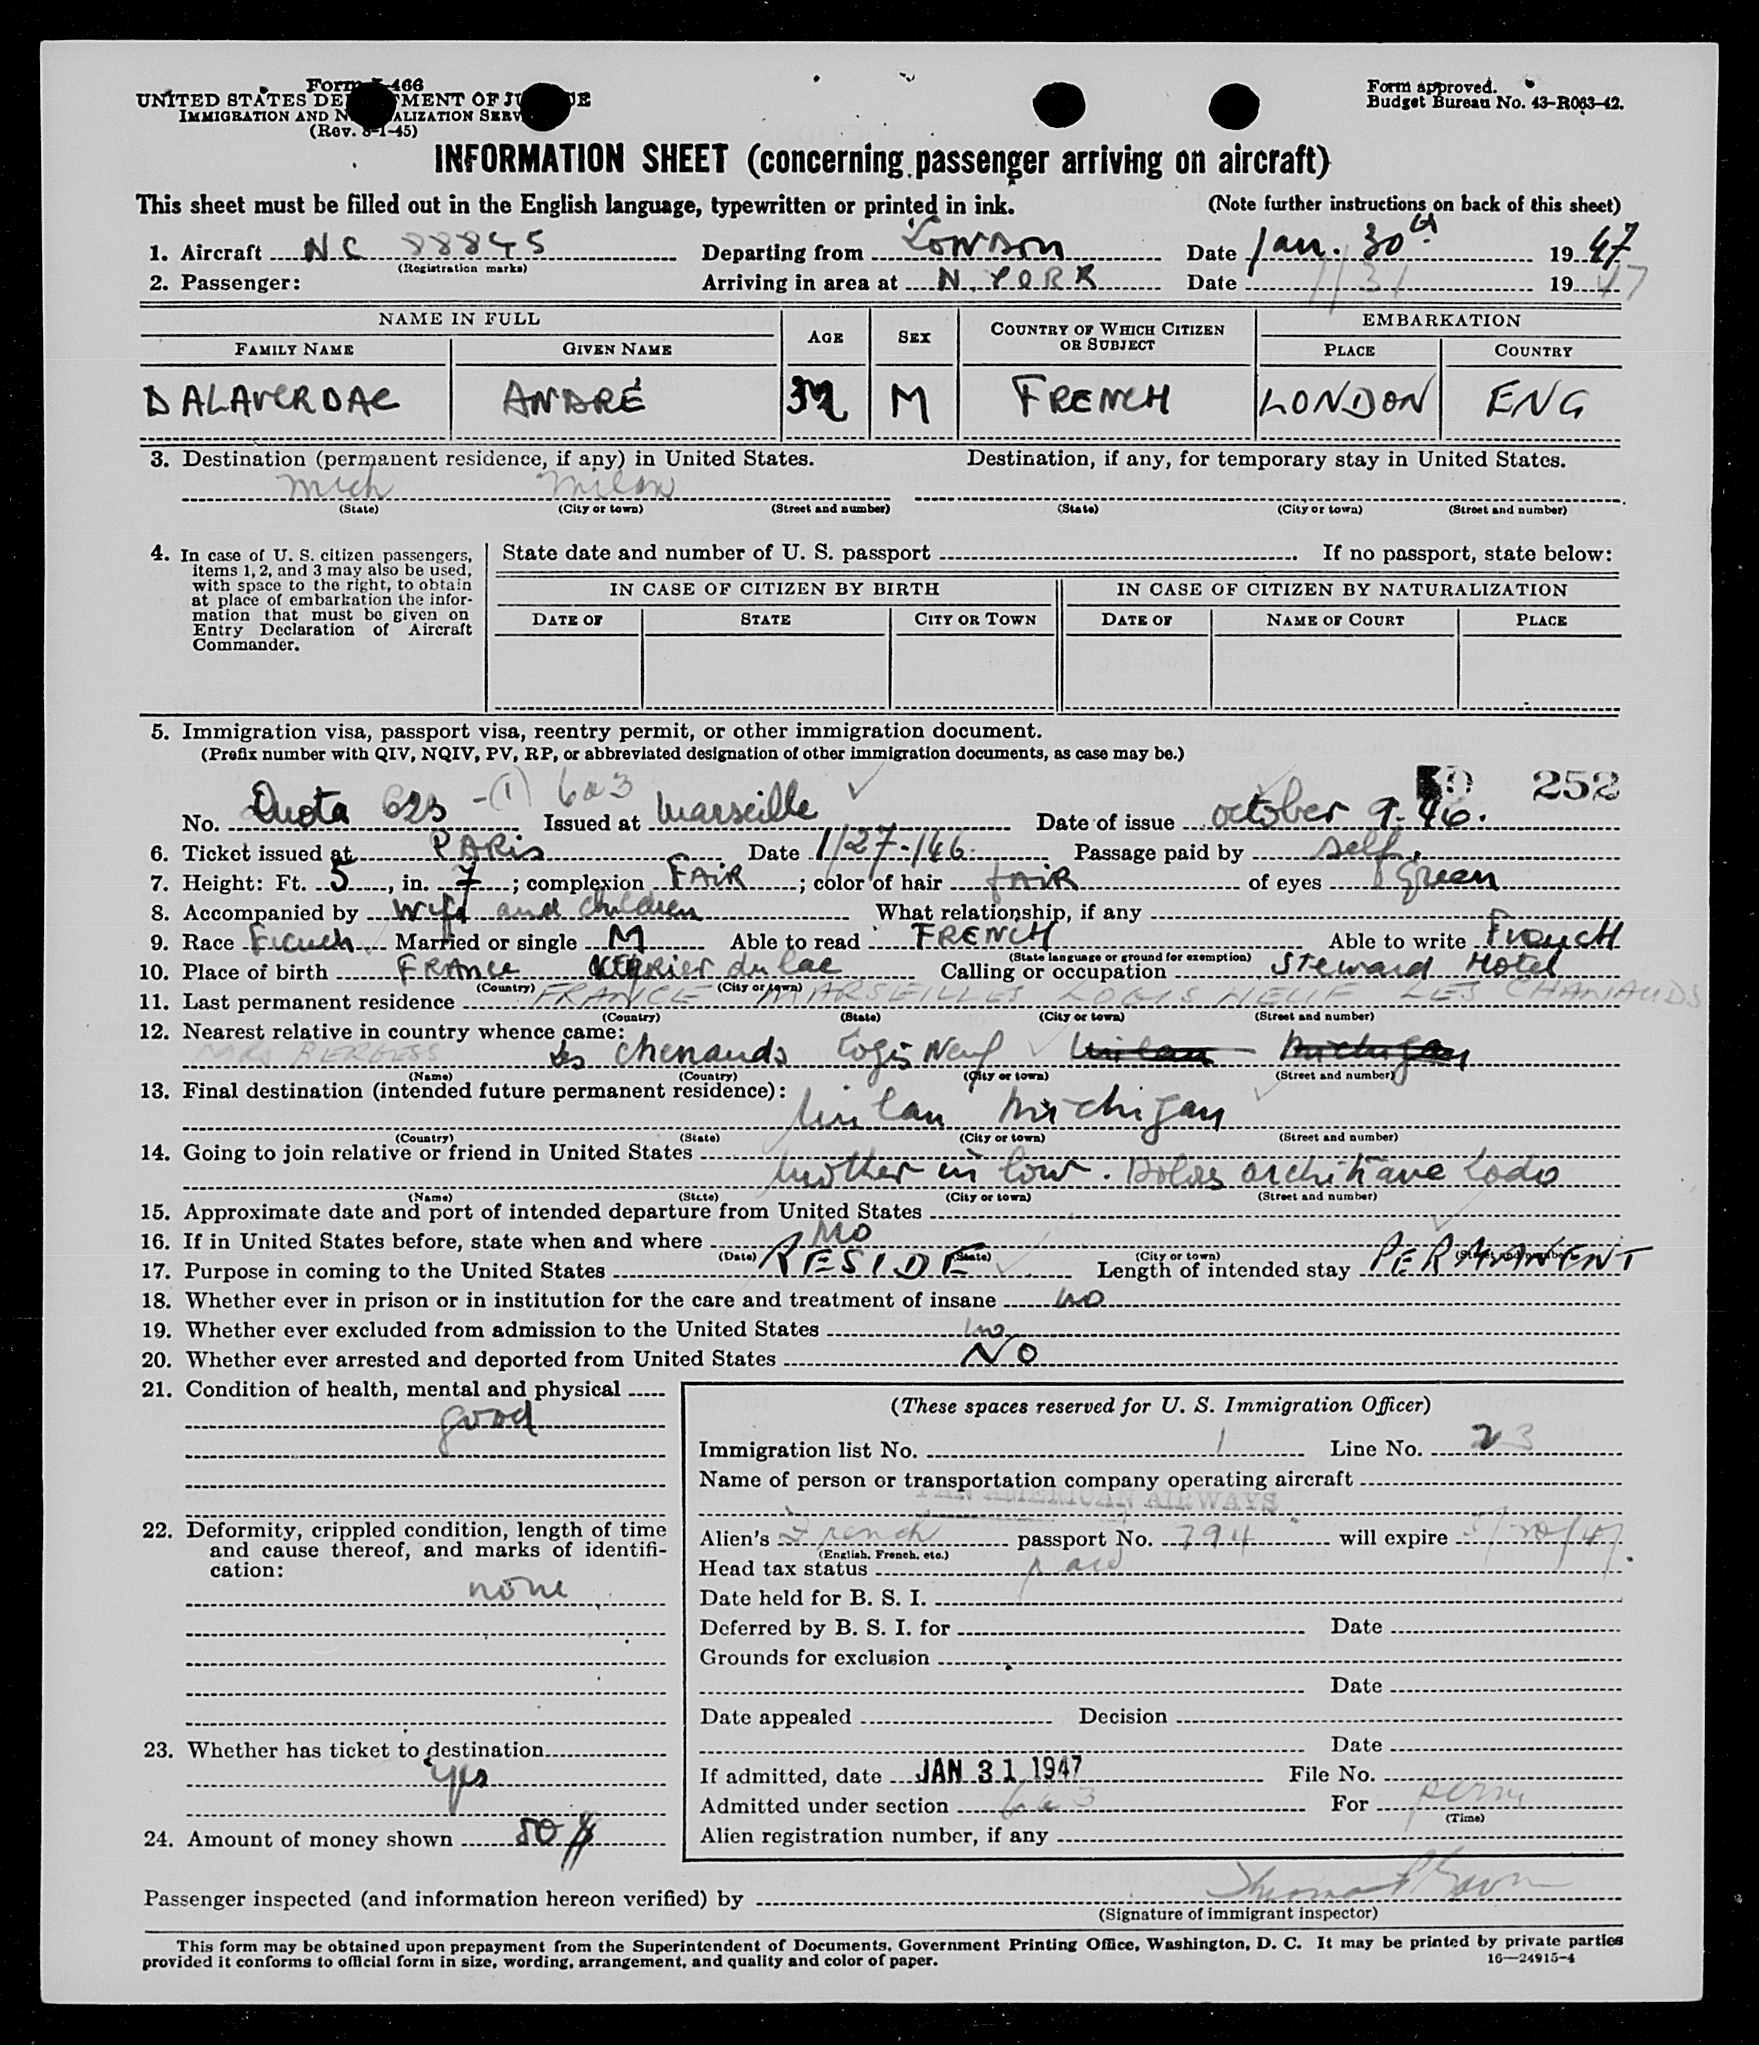 Form I-466
UNITED STATES DEPARTMENT OF JUSTICE
IMMIGRATION AND NATURALIZATION SERVICE
(Rev. 8-1-45)
Form approved.
Budget Bureau No. 43-R063-42.
INFORMATION SHEET (concerning passenger arriving on aircraft)
This sheet must be filled out in the English language, typewritten or printed in ink. (Note further instructions on back of this sheet)
1. Aircraft NC 88845 Departing from LONDON Date Jan. 30th 1947
(Registration marks)
2. Passenger: Arriving in area at N. YORK Date 1/31 1947
NAME IN FULL AGE SEX COUNTRY OF WHICH CITIZEN OR SUBJECT EMBARKATION
FAMILY NAME GIVEN NAME PLACE COUNTRY
DALAVERDAC ANDRÉ 32 M FRENCH LONDON ENG
3. Destination (permanent residence, if any) in United States. Destination, if any, for temporary stay in United States.
Mich Milan
(State) (City or town) (Street and number) (State) (City or town) (Street and number)
4. In case of U. S. citizen passengers, items 1, 2, and 3 may also be used, with space to the right, to obtain at place of embarkation the information that must be given on Entry Declaration of Aircraft Commander.
State date and number of U. S. passport If no passport, state below:
IN CASE OF CITIZEN BY BIRTH IN CASE OF CITIZEN BY NATURALIZATION
DATE OF STATE CITY OR TOWN DATE OF NAME OF COURT PLACE
5. Immigration visa, passport visa, reentry permit, or other immigration document.
(Prefix number with QIV, NQIV, PV, RP, or abbreviated designation of other immigration documents, as case may be.)
252
No. Quota 623 -(1) 6a3 Issued at Marseille Date of issue october 9.46.
6. Ticket issued at PARIS Date 1/27-146. Passage paid by self.
7. Height: Ft. 5, in. 7; complexion FAIR; color of hair FAIR of eyes green
8. Accompanied by Wife and children What relationship, if any
9. Race French Married or single M Able to read FRENCH Able to write FrenCH
(State language or ground for exemption)
10. Place of birth FRAnce du lac Calling or occupation Steward Hotel
(Country) (City or town)
11. Last permanent residence FRANCE MARSEILLES LOGIS NEUF LES CHANAUDS
(Country) (State) (City or town) (Street and number)
12. Nearest relative in country whence came:
MRS BERGESS les chenauds Logis Neuf Milan Michigan
(Name) (Country) (City or town) (Street and number)
13. Final destination (intended future permanent residence):
Milan Michigan
(Country) (State) (City or town) (Street and number)
14. Going to join relative or friend in United States
Mother in low.
(Name) (State) (City or town) (Street and number)
15. Approximate date and port of intended departure from United States
16. If in United States before, state when and where NO
(Date) (State) (City or town) (Street and number)
17. Purpose in coming to the United States RESIDE Length of intended stay PERMANENT
18. Whether ever in prison or in institution for the care and treatment of insane no
19. Whether ever excluded from admission to the United States no
20. Whether ever arrested and deported from United States NO
21. Condition of health, mental and physical
good
22. Deformity, crippled condition, length of time and cause thereof, and marks of identification:
none
23. Whether has ticket to destination
yes
24. Amount of money shown 50 $
(These spaces reserved for U. S. Immigration Officer)
Immigration list No. 1 Line No. 23
Name of person or transportation company operating aircraft
PAN AMERICAN AIRWAYS
Alien's French passport No. 794 will expire
(English, French, etc.)
Head tax status paid
Date held for B. S. I.
Deferred by B. S. I. for Date
Grounds for exclusion
Date
Date appealed Decision
Date
If admitted, date JAN 31 1947 File No.
Admitted under section 6a3 For perm
(Time)
Alien registration number, if any
Passenger inspected (and information hereon verified) by
(Signature of immigrant inspector)
This form may be obtained upon prepayment from the Superintendent of Documents, Government Printing Office, Washington, D. C. It may be printed by private parties
provided it conforms to official form in size, wording, arrangement, and quality and color of paper. 16—24915-4